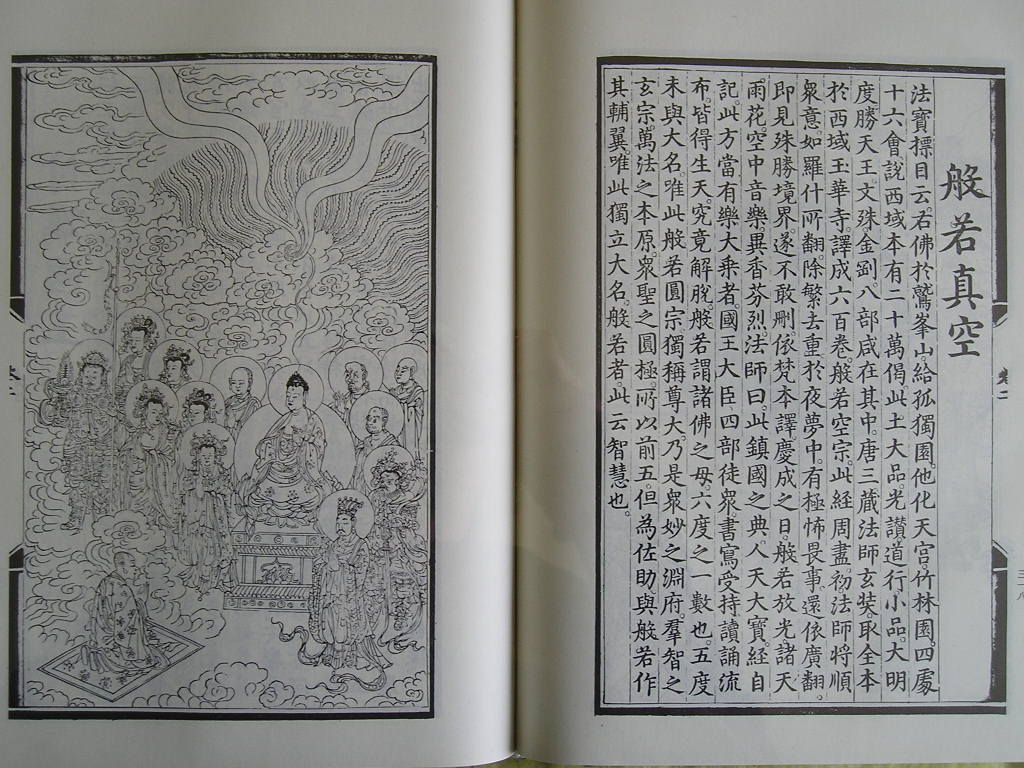 般若真空
法寶標目云。若佛於鷲峯山。給孤獨園。他化天宮。竹林園。四處
十六會說。西域本有二十萬偈。此土大品。光讚。道行。小品。大明
度。勝天王。文殊。金剛。八部咸在其中。唐三藏法師玄奘。取全本
於西域。玉華寺。譯成六百卷。般若空宗。此經周盡。初法師將順
衆意。如羅什所翻。除繁去重。於夜夢中。有極怖畏事。還依廣翻。
即見殊勝境界。遂不敢刪。依梵本譯。慶成之日。般若放光。諸天
雨花。空中音樂。異香芬烈。法師曰。此鎮國之典。人天大寶。經自
記。此方當有樂大乘者。國王大臣。四部徒衆。書寫受持。讀誦流
布。皆得生天。究竟解脫。般若謂諸佛之母。六度之一數也。五度
未與大名。唯此般若圓宗。獨稱尊大。乃是衆妙之淵府。羣智之
玄宗。萬法之本原。衆聖之圓極。所以前五。但為佐助。與般若作
其輔翼。唯此獨立大名。般若者。此云智慧也。
卷二
三八